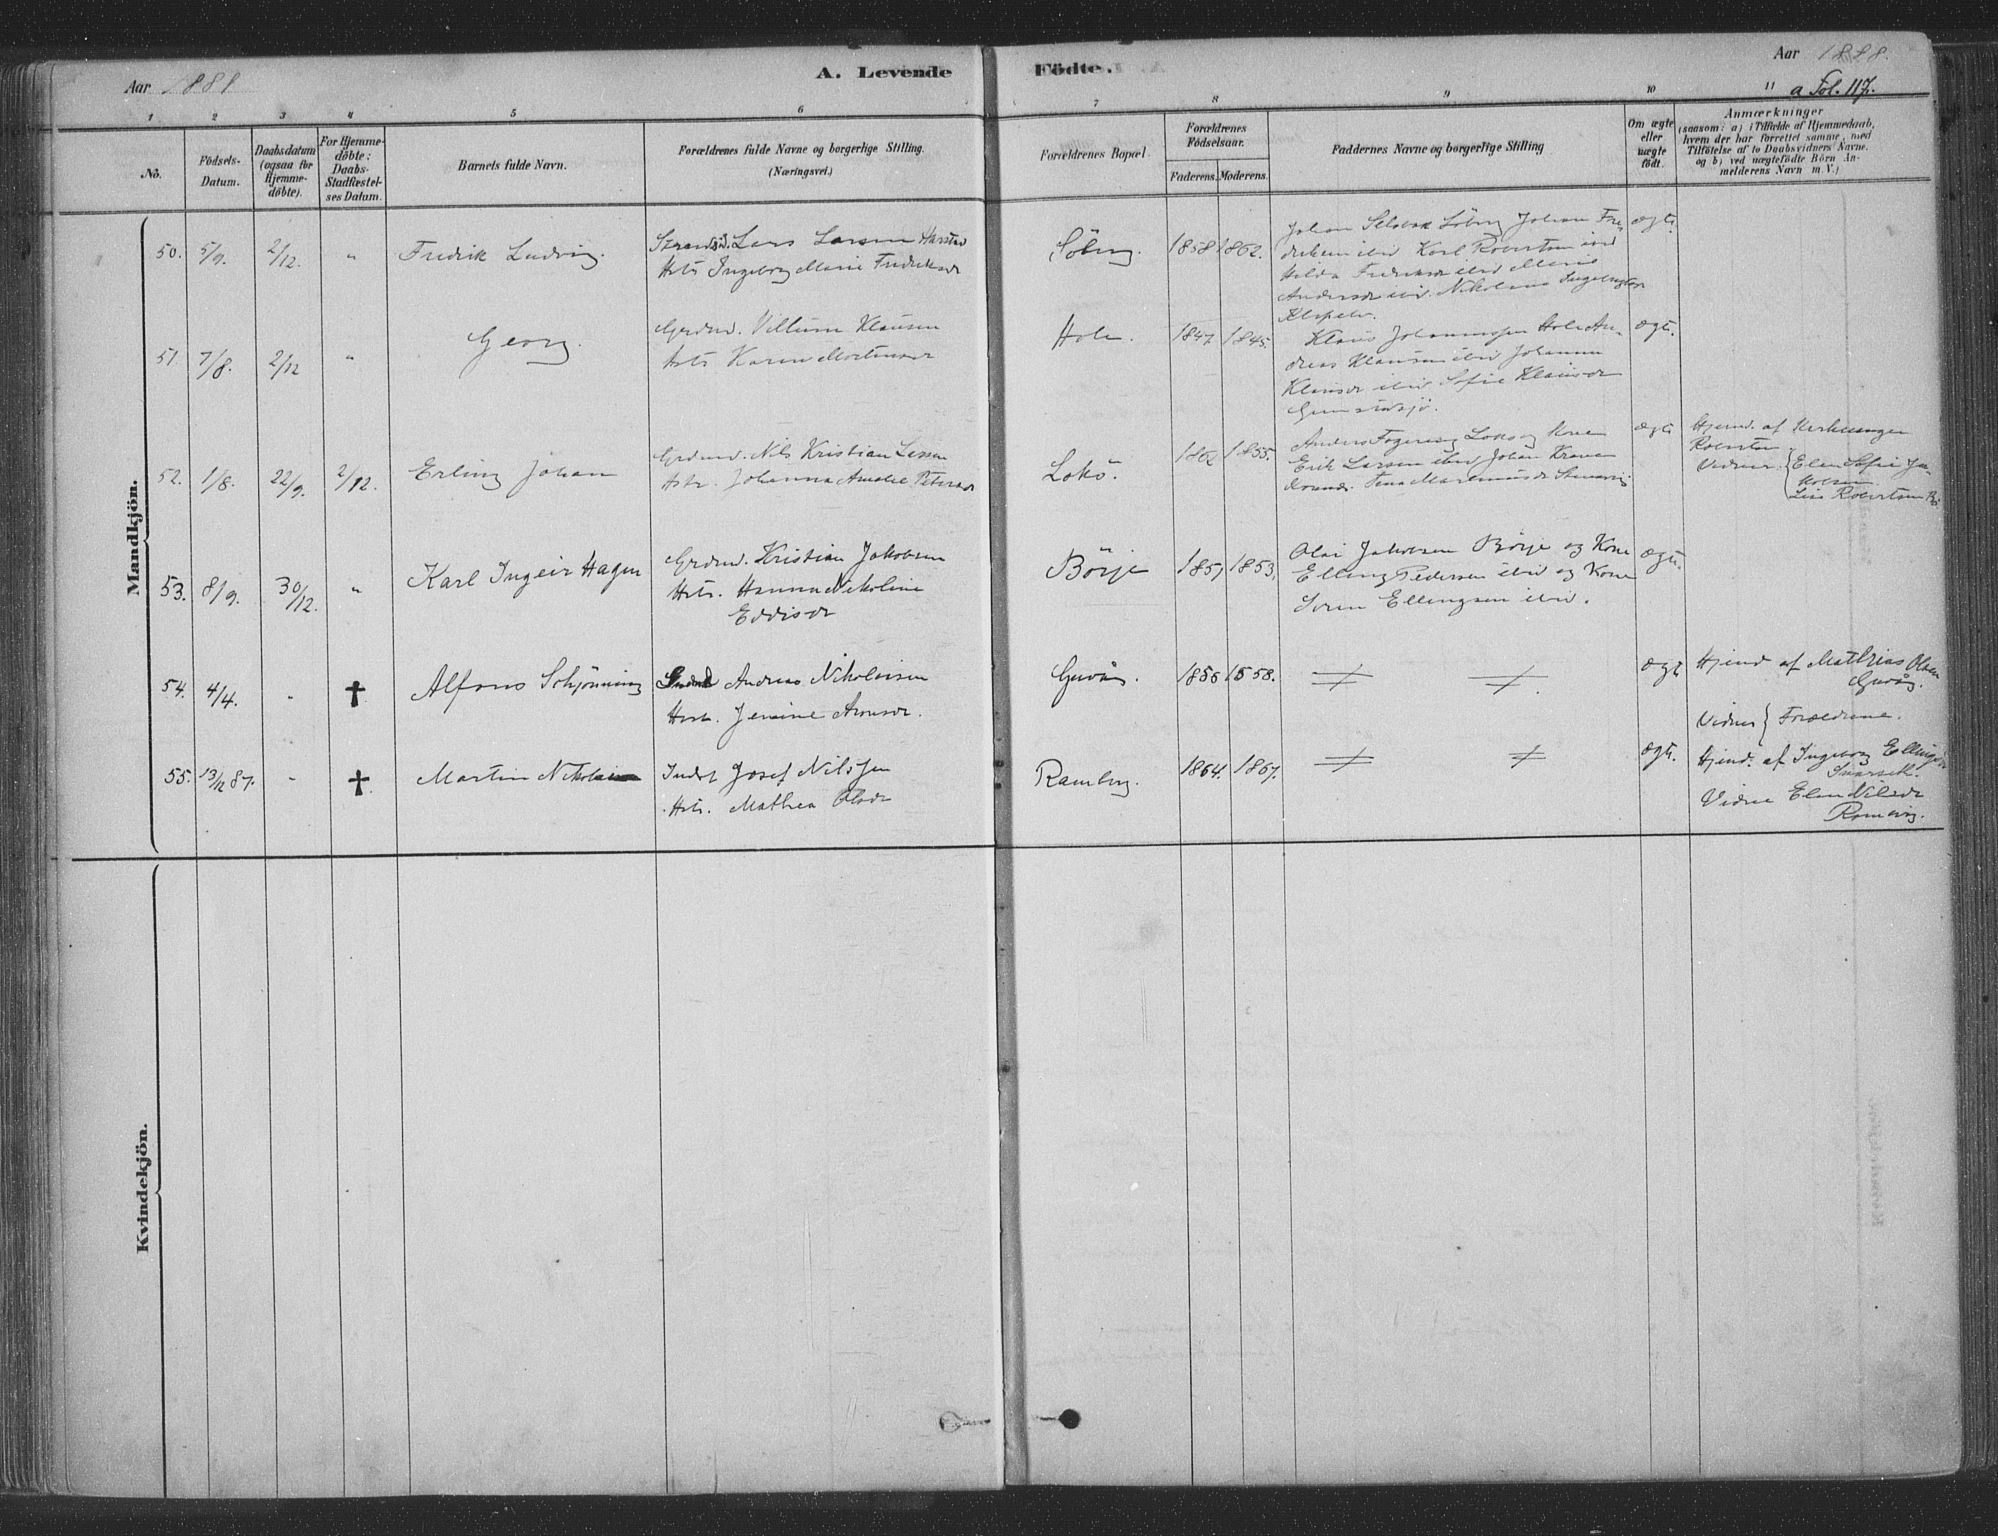 Aar 1888
A. Levende
Födte.
Aar 1888.
a Fol. 117.
1 2 3 4 5 6 7 8 9 10 11
No.
Födsels-Datum.
Daabsdatum (ogsaa for Hjemme-döbte).
For Hjemme-döbte: Daabs-Stadfæstel-ses Datum.
Barnets fulde Navn.
Forældrenes fulde Navne og borgerlige Stilling.
(Næringsvei.)
Forældrenes Bopæl.
Forældrenes Födselsaar.
Faderens. Moderens.
Faddernes Navne og borgerlige Stilling
Om ægte eller uægte födt.
Anmærkninger
(saasom: a) i Tilfælde af Hjemmedaab,
hvem der har forrettet samme, med
Tilföielse af to Daabsvidners Navne.
og b) ved uægtefödte Börn An-
melderens Navn m. V.)
Mandkjön.
50. 5/9. 2/12. " Fredrik Ludvig.
Strands. Lars Larsen Harstad
Hstr Ingeborg Marie Fredriksdr
Söberg. 1858 1862.
Johan Selvaa Söberg Johan Fre-
driksen ibid Karl Robertsen ibid
Hilda Fredriksdr ibid Marie
Andersdr ibid. Nikolaus Ingebrigtsen
ægte
51. 7/8. 2/12 " Georg.
Grdmd. Villum Klausen
Hstr Karen Mortensdr
Hole. 1847 1845.
Klaus Johannessen Hole An-
dreas Klausen ibid Johanna
Klausdr ibid. Sofie Klausdr
ægte.
52. 1/8. 22/9. 2/12. Erling Johan
Grdmd. Nils Kristian
Hstr. Johanna Amalie Petersdr
Lokö. 1862 1855.
Anders Fagervig Lokö og Kone
Erik Larsen ibid Johan
ægte
Hjemd. af Kirkesanger
Robertsen
Vidner. { Elen Sofie Ja-
kobsen.
Robertsen
53. 8/9. 30/12. " Karl Ingeir Hagen
Grdmd. Kristian Jakobsen
Hstr. Hanna Nikoline
Eddisdr
Börje 1851 1853.
Olai Jakobsen Börje og Kone
Elling Pedersen ibid og Kone
Soren Ellingsen ibid.
ægte.
54. 4/4. - † Alfons Schjönning
Andreas Nikolaisen
Hstr. Jensine Aronsdr.
1856 1858.
ægte
Hjemd af Mathias Olsen
Vidner } Forældrene.
55. 13/12 87. - † Martin Nikolai
Inderst Josef Nilssen
Hstr. Mathea Olsdr
Ramberg. 1864. 1867.
ægte.
Hjemd. af Ingeborg Ellingsdr
Vidne Elen Nilsdr
Kvindekjön.